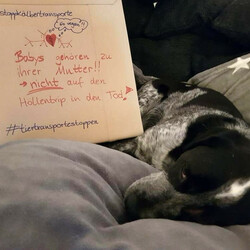 stoppkälbertransporte
Go vegan!!
Babys gehören zu
ihrer Mutter!!
→ nicht auf den
Höllentrip in den Tod!
#tiertransportestoppen